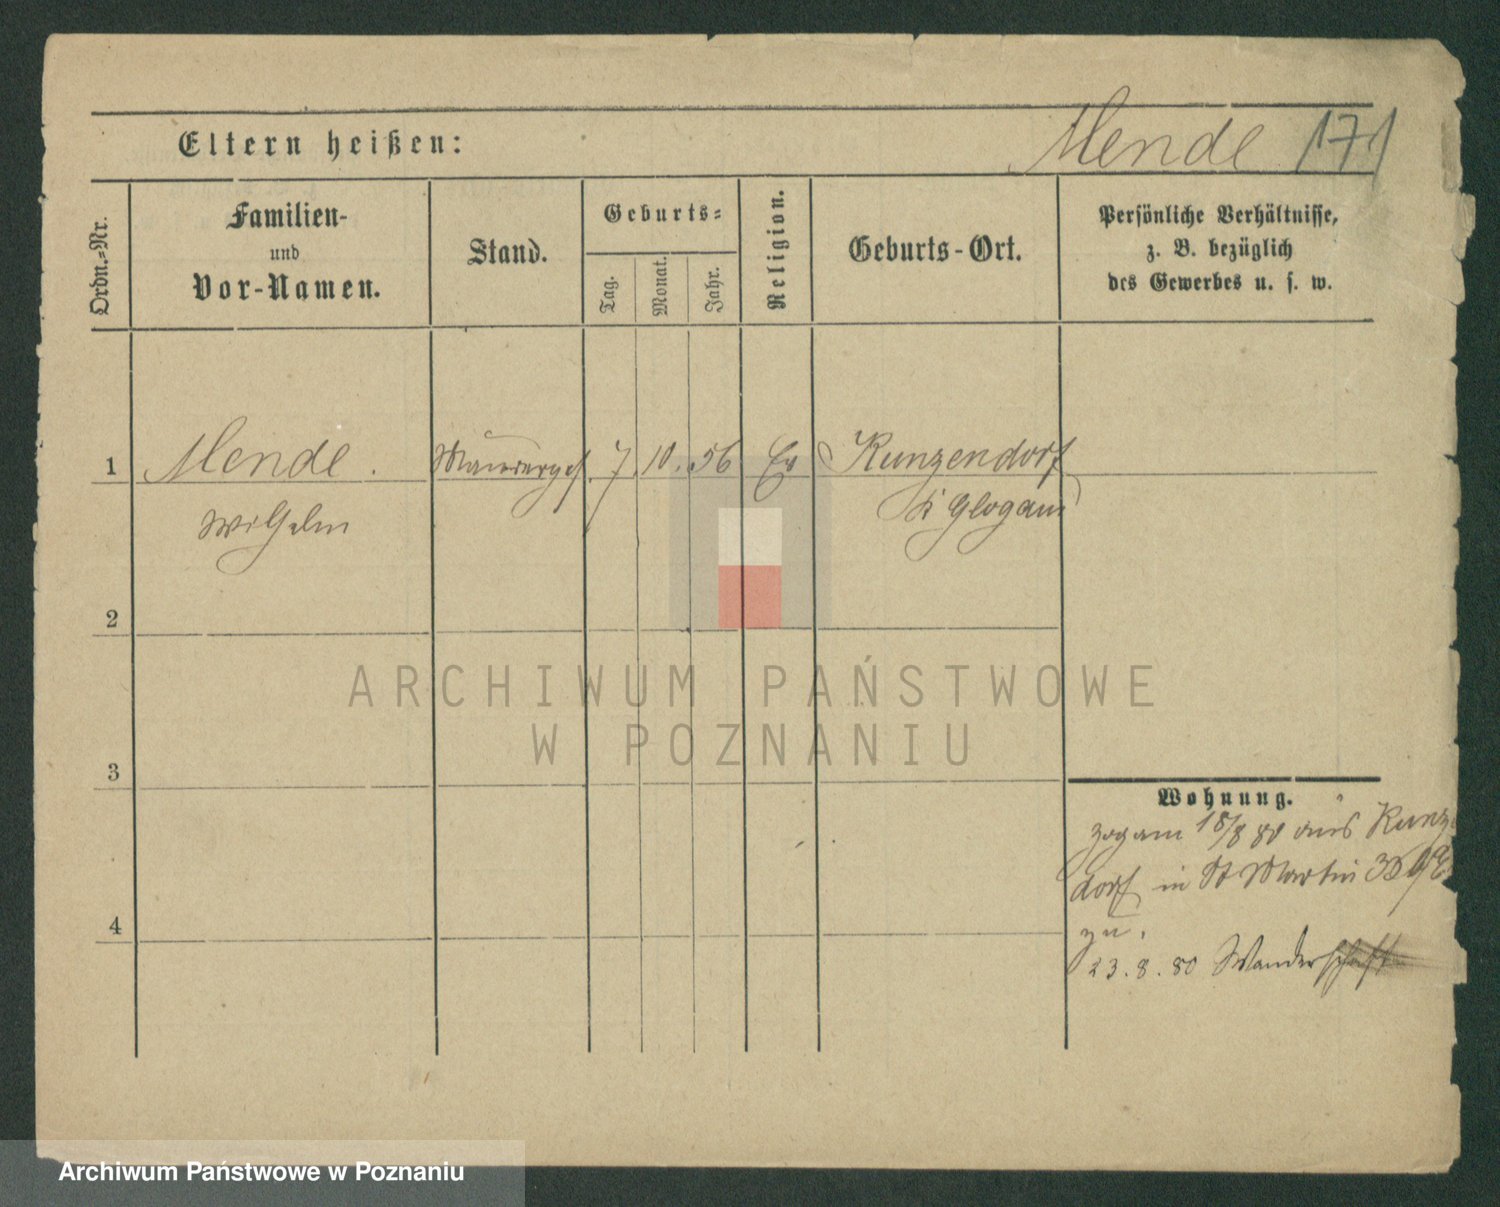 Eltern heißen:
Mende 171
Ordn.-Nr.
Familien-
und
Vor-Namen.
Stand.
Geburts-
Tag.
Monat.
Jahr.
Religion.
Geburts-Ort.
Persönliche Verhältnisse,
z. B. bezüglich
des Gewerbes u. s. w.
1
Mende.
Maurerges
7. 10. 56
Ev
Kunzendorf
Wilhelm
K Glogau
2
ARCHIWUM PAŃSTWOWE
W POZNANIU
3
Wohnung.
zog am 18/8 80 aus Kunz
dorf in St Martin 33
zu.
4
23. 8. 80 Wanderschaft
Archiwum Państwowe w Poznaniu